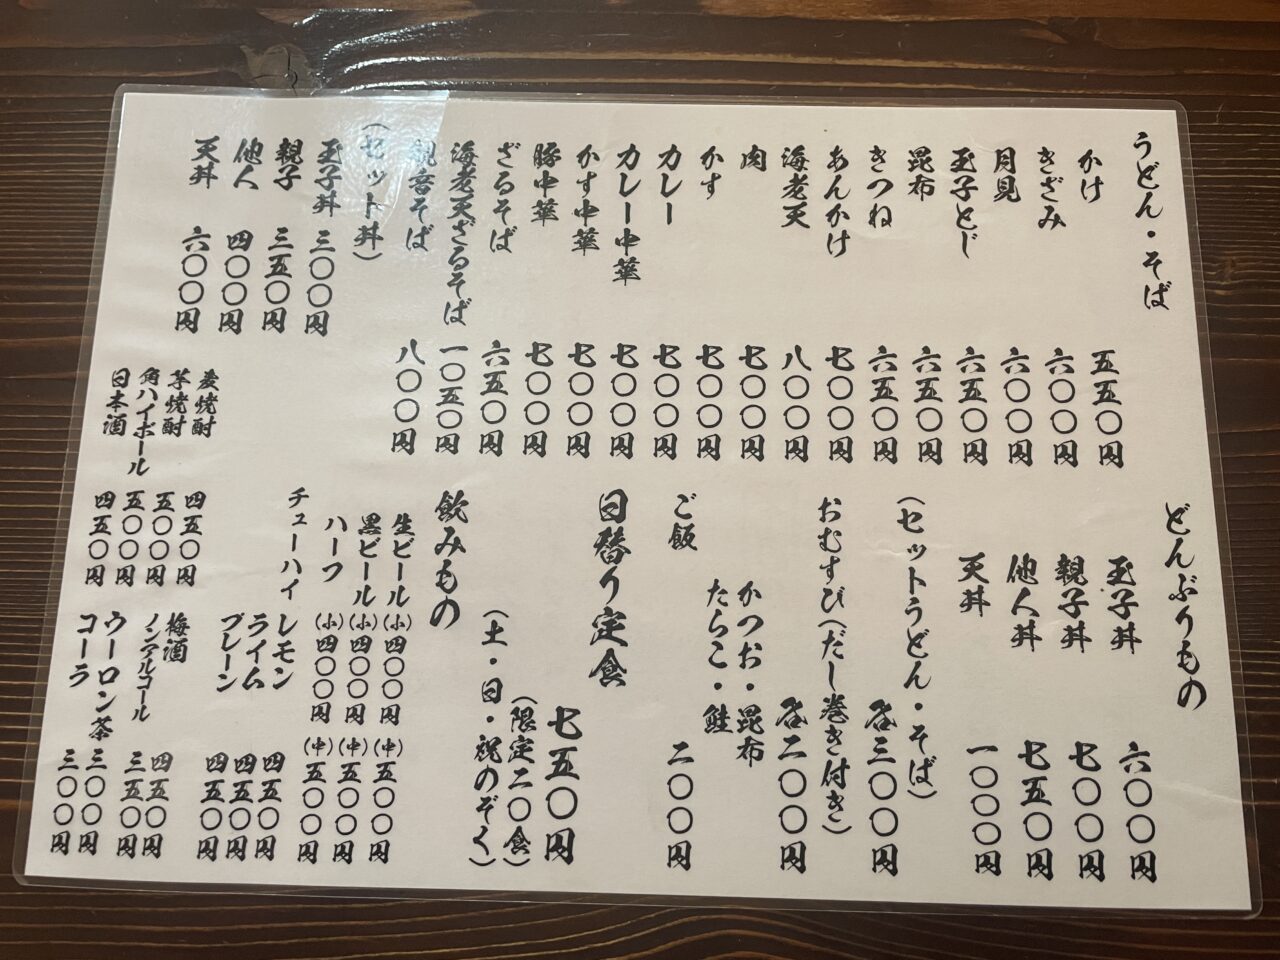 うどん・そば
かけ 五五〇円
きざみ 六〇〇円
月見 六〇〇円
玉子とじ 六五〇円
昆布 六五〇円
きつね 六五〇円
あんかけ 七〇〇円
海老天 八〇〇円
肉 七〇〇円
かす 七〇〇円
カレー 七〇〇円
カレー中華 七〇〇円
かす中華 七〇〇円
豚中華 七〇〇円
ざるそば 六五〇円
海老天ざるそば 一〇五〇円
観音そば 八〇〇円
(セット丼)
玉子丼 三〇〇円
親子 三五〇円
他人 四〇〇円
天丼 六〇〇円
どんぶりもの
玉子丼 六〇〇円
親子丼 七〇〇円
他人丼 七五〇円
天丼 一〇〇〇円
(セットうどん・そば)
各三〇〇円
おむすび(だし巻き付き)
各二〇〇円
かつお・昆布
たらこ・鮭
ご飯 二〇〇円
日替り定食
七五〇円
(限定二〇食)
(土・日・祝のぞく)
飲みもの
生ビール (小)四〇〇円 (中)五〇〇円
黒ビール (小)四〇〇円 (中)五〇〇円
ハーフ (小)四〇〇円 (中)五〇〇円
チューハイ レモン 四五〇円
ライム 四五〇円
プレーン 四五〇円
麦焼酎 四五〇円
芋焼酎 五〇〇円
角ハイボール 五〇〇円
日本酒 四五〇円
梅酒 四五〇円
ノンアルコール 三五〇円
ウーロン茶 三〇〇円
コーラ 三〇〇円